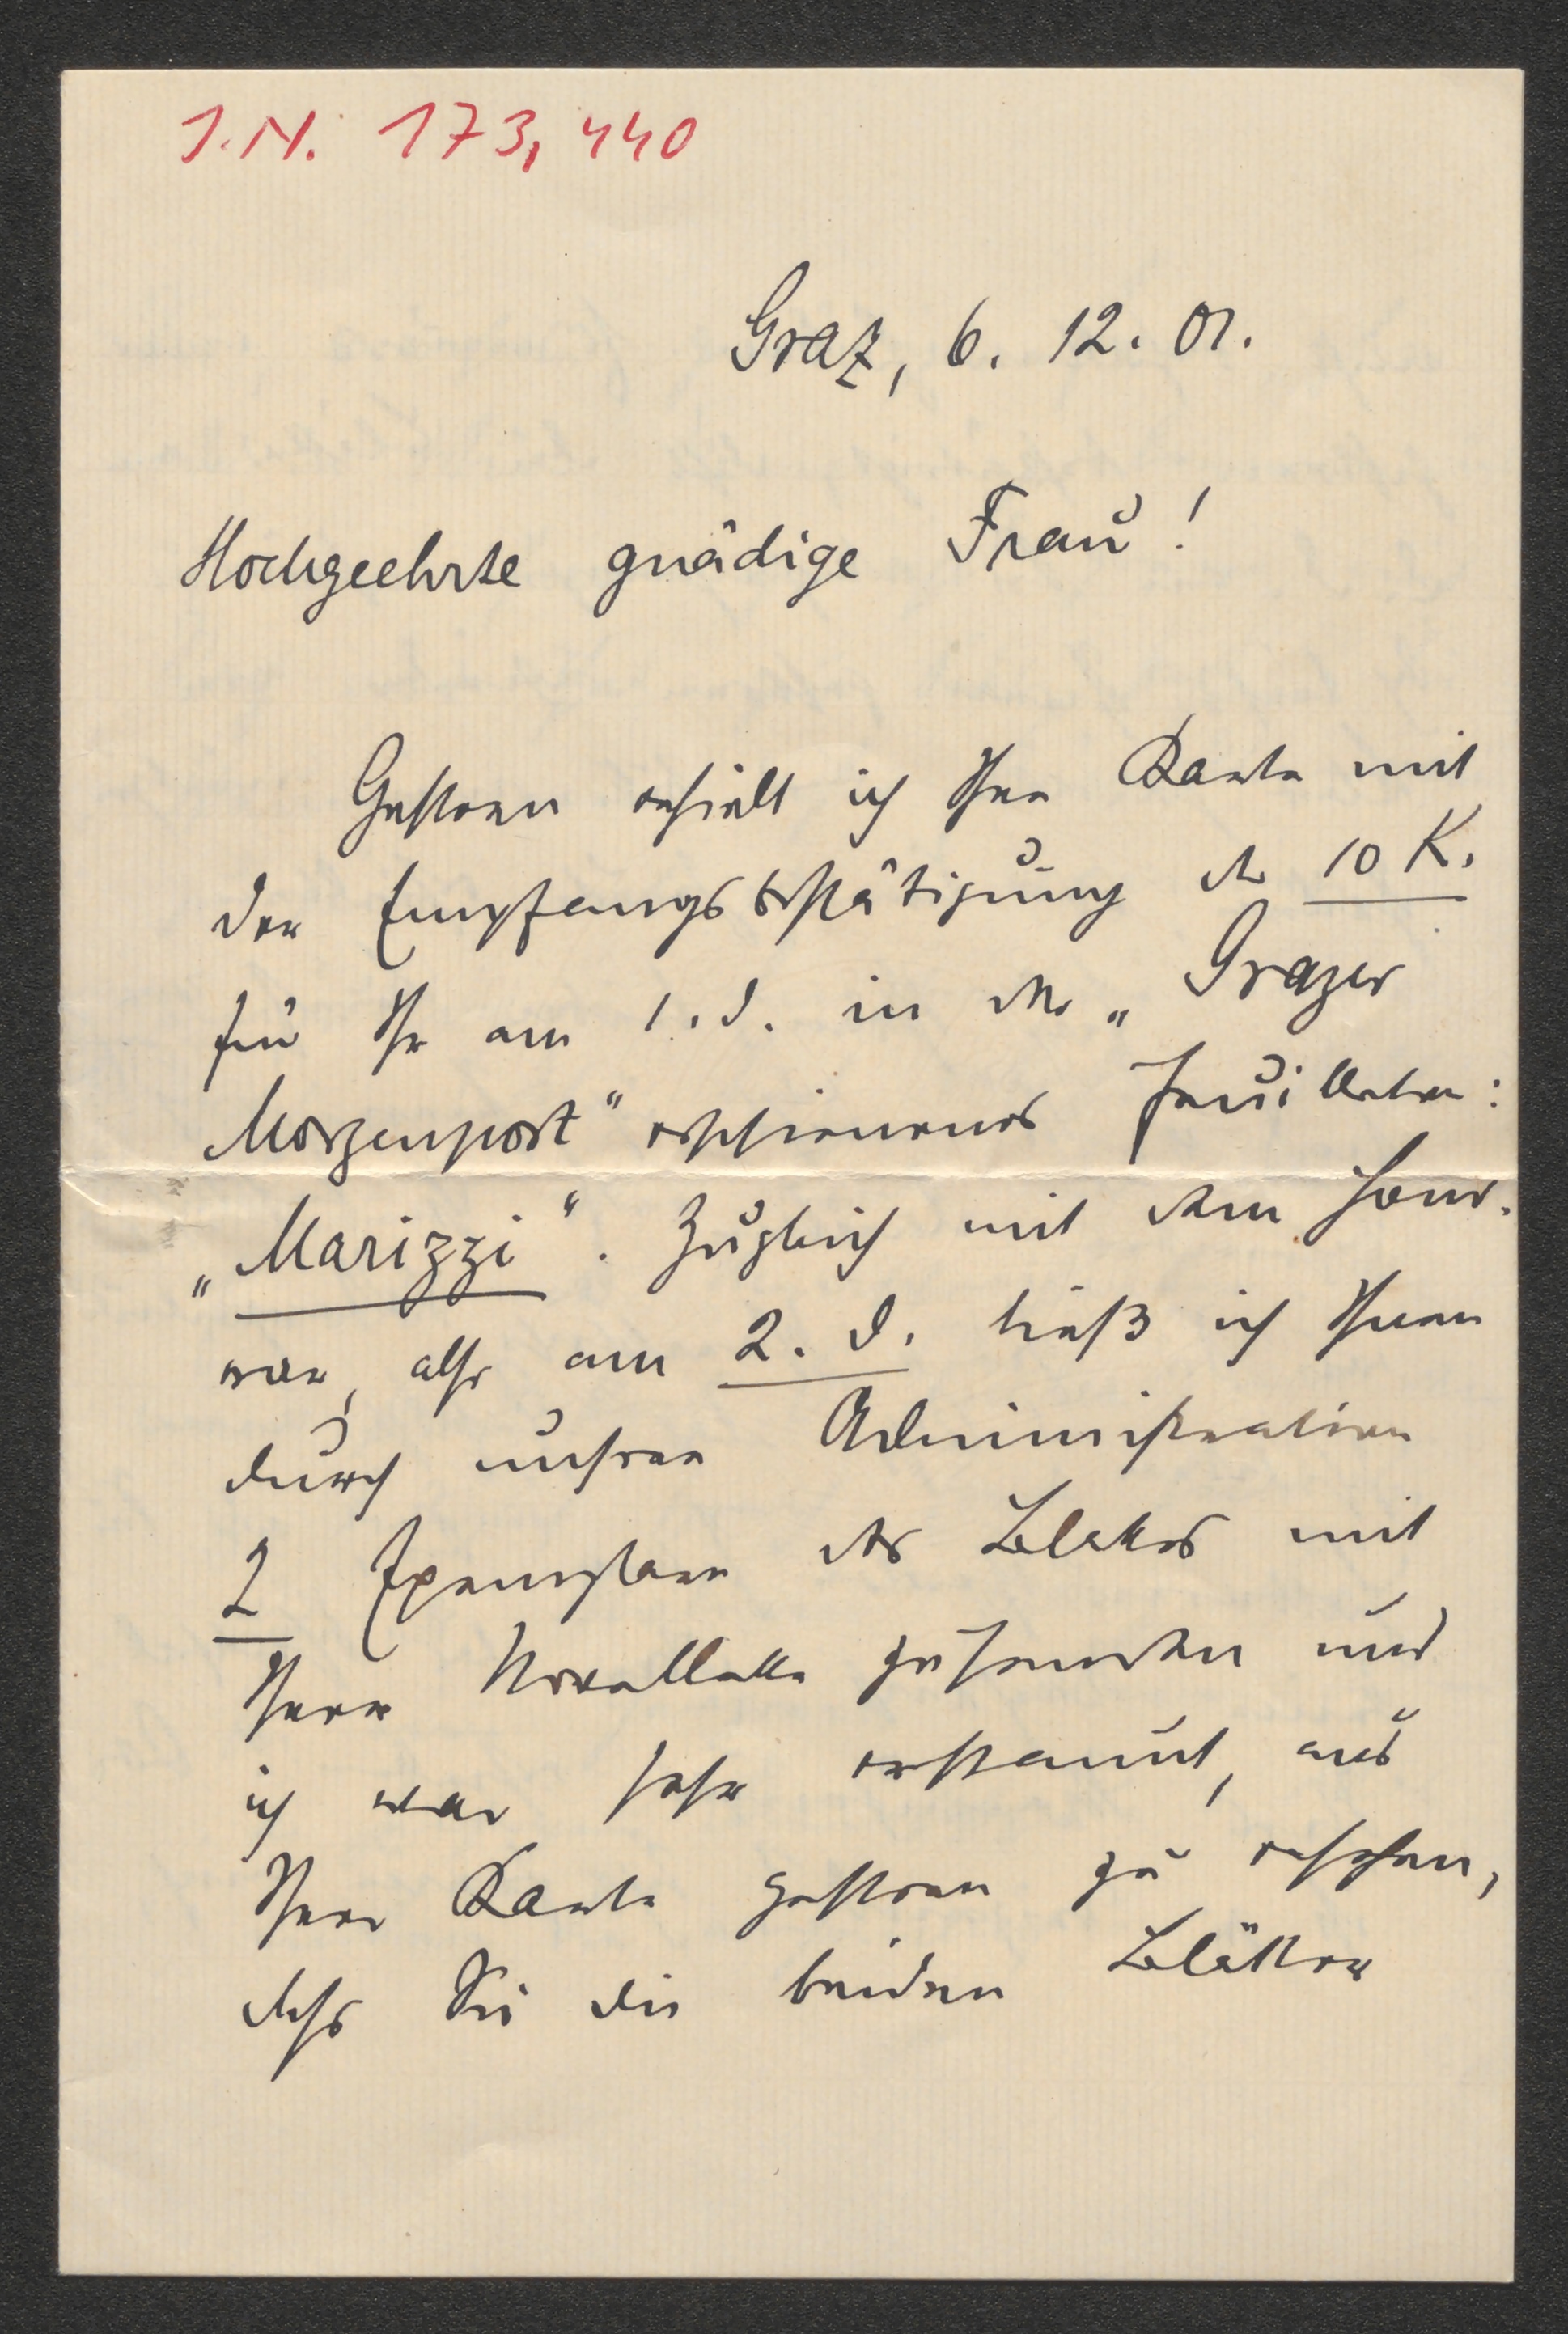 J.N. 173,440
Graz, 6. 12. 01.
Hochgeehrte gnädige Frau!
Gestern erhielt ich Ihre Karte mit
der Empfangsbestätigung der 10 K.
für Ihr am 1. d. in der „Grazer
Morgenpost" erschienenes Feuilleton:
„Marizzi". Zugleich mit dem Hono-
rar, also am 2. d. ließ ich Ihnen
durch unsere Administration
2 Exemplare des Blattes mit
Ihrer Novellette zusenden und
ich war sehr erstaunt, aus
Ihrer Karte gestern zu ersehen,
dass Sie die beiden Blätter